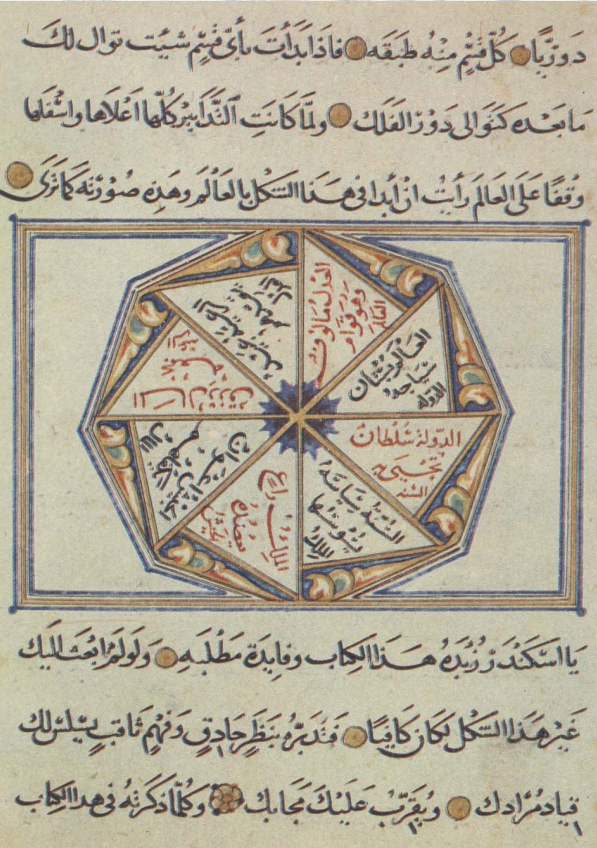 دوريّا كلّ قسم منه طبقه فاذا ابدأت بأىّ قسم شيت توال لك
ما بعده كتوالى دور الفلك ولمّا كانت التدابير كلها اعلاها واسفلها
وقفا على العالم رأيت ان أبدا فى هذا الشكل بالعالم وهذه صورته كما ترى
العدل مالوف
وهو قوام
العالم
العالم بستان
سياجه
الدولة
الدولة سلطان
تحيى به
السنه
السنة سياسة
يسوسها
الملك
الملك راع
يعضده
الجيش
الجيش اعوان
يكفلهم
المال
المال رزق
تجمعه
الرعية
يا اسكندر وزبدة هذا الكتاب وفايدة مطلبه ولو لم ابعث اليك
غير هذا الشكل لكان كافيا فتدبّره بنظر حاذق وفهم ثاقب يسلس لك
قياد مرادك ويقرّب عليك محابك وكلما ذكرته فى هذا الكتاب